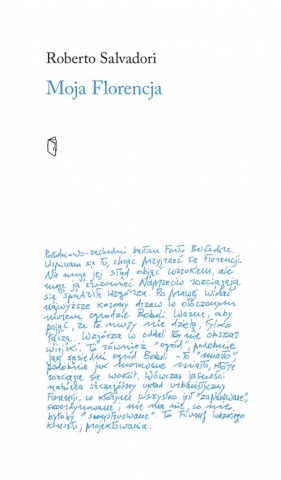 Roberto Salvadori
Moja Florencja
Południowo-zachodni bastion Forte Belvedere.
Wspinam się tu, chcąc przyjrzeć się Florencji.
Nie mogę jej stąd objąć wzrokiem, ale
mogę ją zrozumieć. Naprzeciw rozciągają
się spadziste wzgórza. Po prawej widać
najwyższe korony drzew w otoczonym
murem ogrodzie Boboli. Ważne, aby
pojąć, że te mury nie dzielą, tylko
łączą. Wzgórza w oddali to nie obszar
wiejski. To również "ogród", podobnie
jak sąsiedni ogród Boboli - to "miasto"
podobnie jak murowane miasto, które
rozciąga się wokół. Wówczas jasności
nabiera szczególny układ urbanistyczny
Florencji, w którym wszystko jest "zaplanowane",
skoordynowane i nie ma nic, co nie
byłoby "skonstruowane". To triumf ludzkiego
konceptu, projektowania.